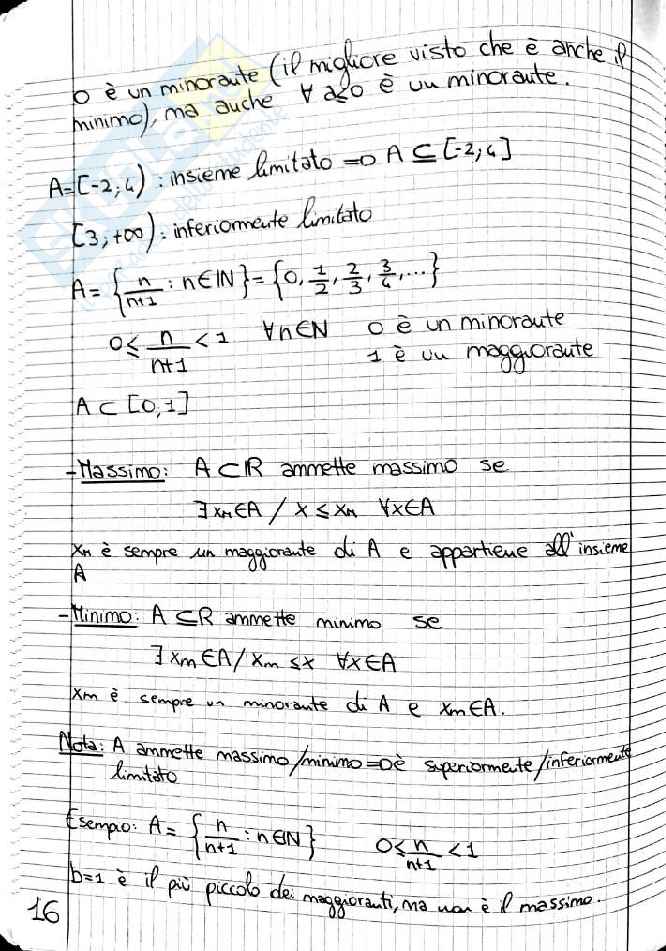 0 è un minorante (il migliore visto che è anche il
minimo), ma anche ∀ a≤0 è un minorante.
A=[-2;4) : insieme limitato => A ⊆ [-2;4]
[3;+∞) : inferiormente limitato
A = { n/(n+1) : n∈ℕ } = { 0, 1/2, 2/3, 3/4, ... }
0 ≤ n/(n+1) < 1 ∀n∈N 0 è un minorante
1 è un maggiorante
A ⊂ [0,1]
- Massimo: A⊂R ammette massimo se
∃ xM∈A / x ≤ xM ∀x∈A
xM è sempre un maggiorante di A e appartiene all'insieme
A
- Minimo: A ⊆R ammette minimo se
∃ xm∈A / xm ≤x ∀x∈A
xm è sempre un minorante di A e xm∈A.
Nota: A ammette massimo/minimo => è superiormente/inferiormente
limitato
Esempio: A = { n/(n+1) : n∈ℕ } 0 ≤ n/(n+1) < 1
b=1 è il più piccolo dei maggioranti, ma non è il massimo.
16